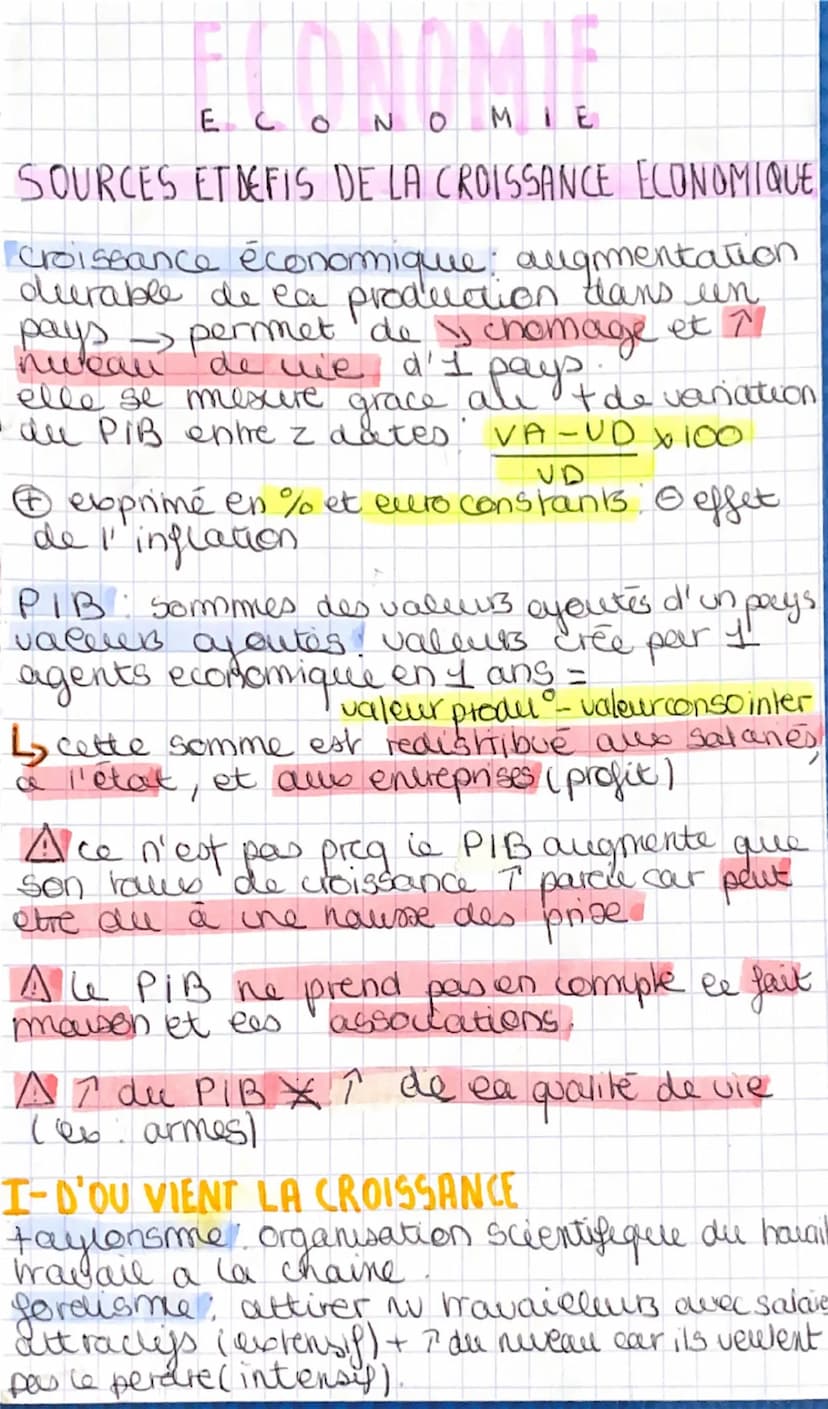 ECONOMIE
E C O N O M I E
SOURCES ET DEFIS DE LA CROISSANCE ECONOMIQUE
croissance économique : augmentation
durable de la production dans un
pays → permet de ↘ chomage et ↑
niveau de vie d'1 pays.
elle se mesure grace au t de variation
du PIB entre 2 dates : VA - VD x 100
VD
⊕ exprimé en % et euro constants : ⊖ effet
de l'inflation
PIB : sommes des valeurs ajoutés d'un pays
valeurs ajoutés : valeurs crée par 1
agents economique en 1 ans =
valeur produ° - valeur conso inter
↳ cette somme est redistribué aux salariés,
a l'état, et aux entreprises (profit)
⚠ ce n'est pas prcq le PIB augmente que
son taux de croissance ↑ pareil car peut
etre du à une hausse des prix.
⚠ le PIB ne prend pas en compte le fait
maison et les associations.
⚠ ↑ du PIB ≠ ↑ de la qualité de vie
(ex : armes)
I- D'OU VIENT LA CROISSANCE
taylorisme : organisation scientifique du travail
travail a la chaine.
fordisme : attirer nv travailleurs avec salaie
attractifs (extensif) + ↑ du niveau car ils veulent
pas le perdre (intensif).